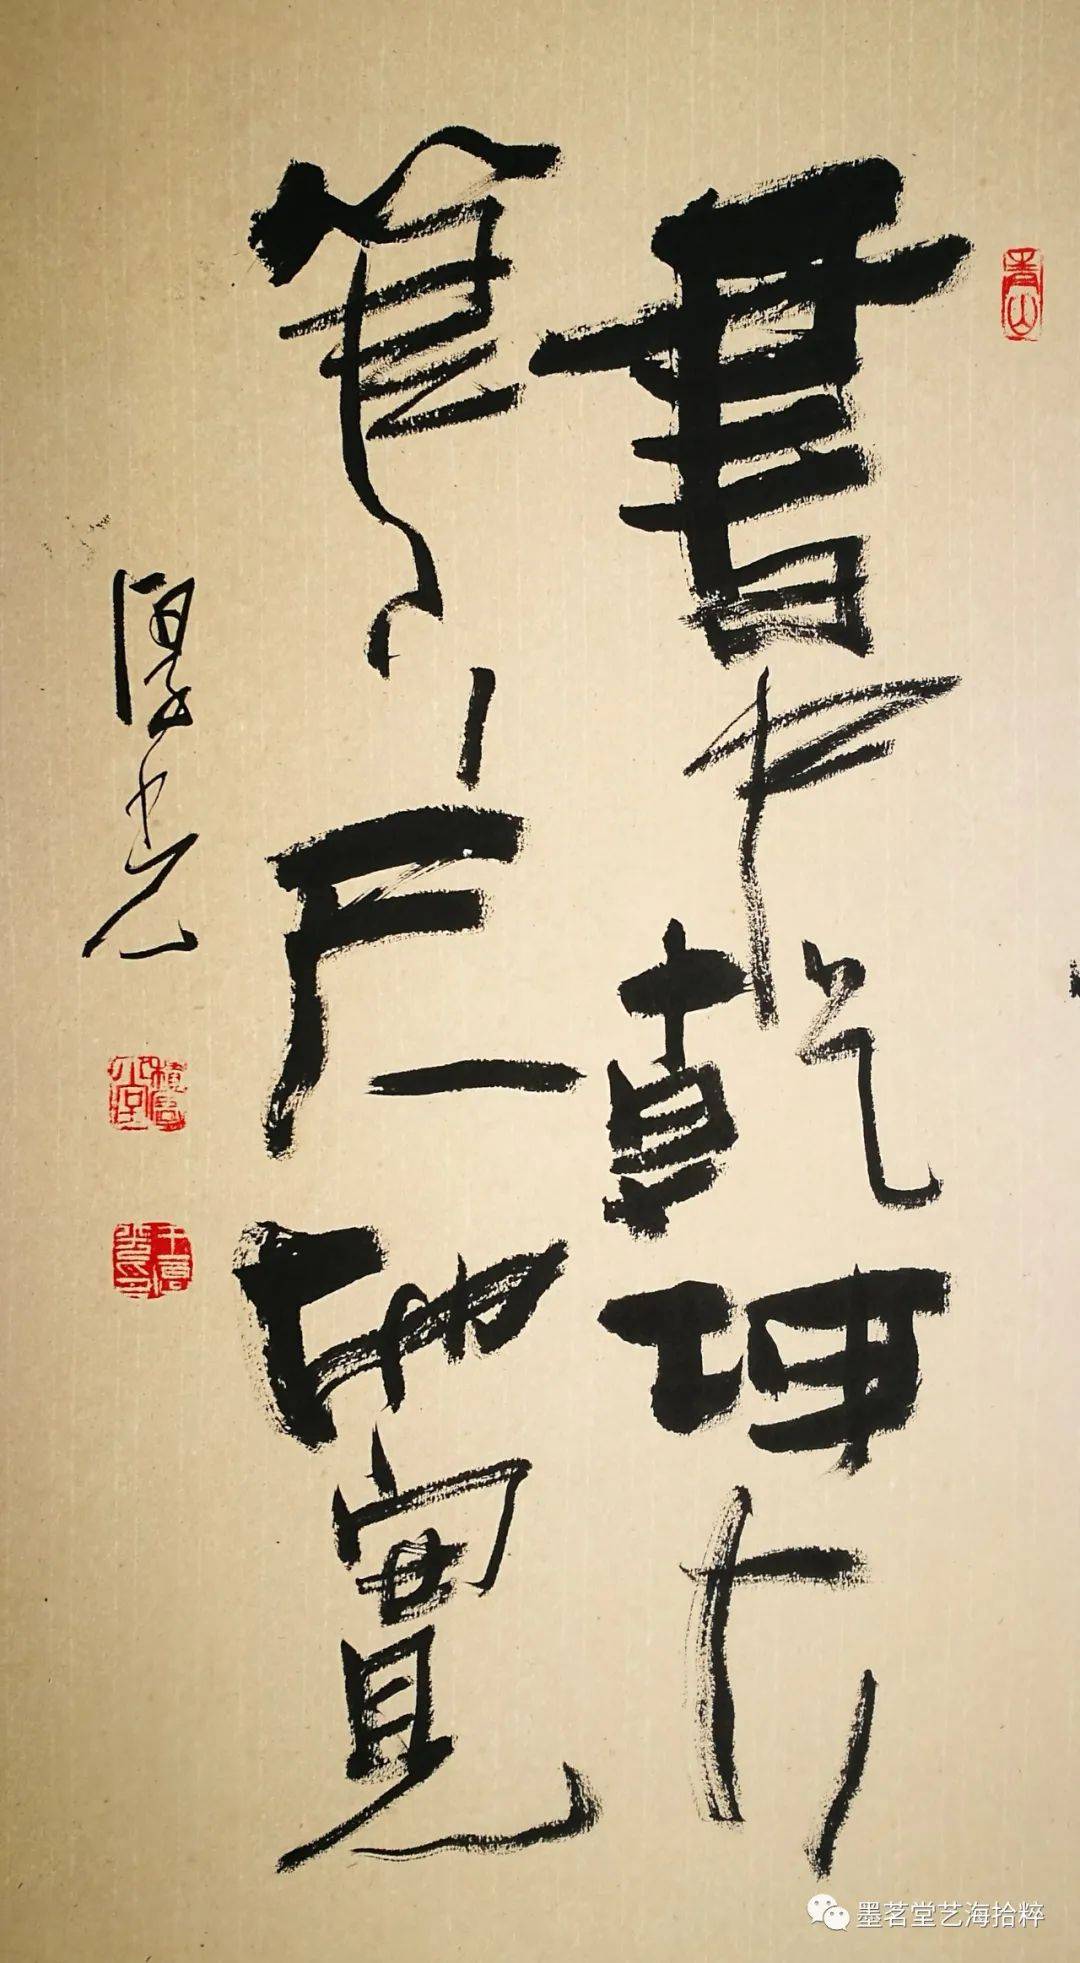 書中乾坤大
筆下天地寬
厚光
青山
墨茗堂艺海拾粹